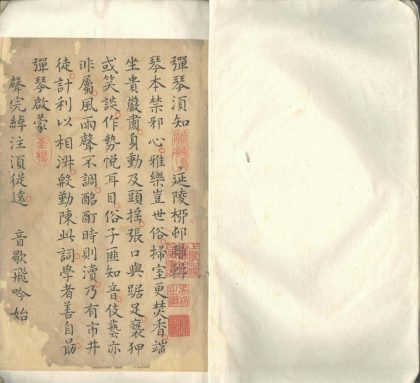 彈琴須知 延陵梛邨
琴本禁邪心雅樂豈世俗掃室更焚香端
坐貴嚴肅身動及頭搖張口與踞足褻狎
或笑談作勢悅耳目俗子匪知音伎藝亦
非屬風雨聲不調酩酊時則瀆乃有市井
徒計利以相洪殷勤陳此詞學者善自勗
彈琴啟蒙
聲完綽注須從遠 音歇飛吟始